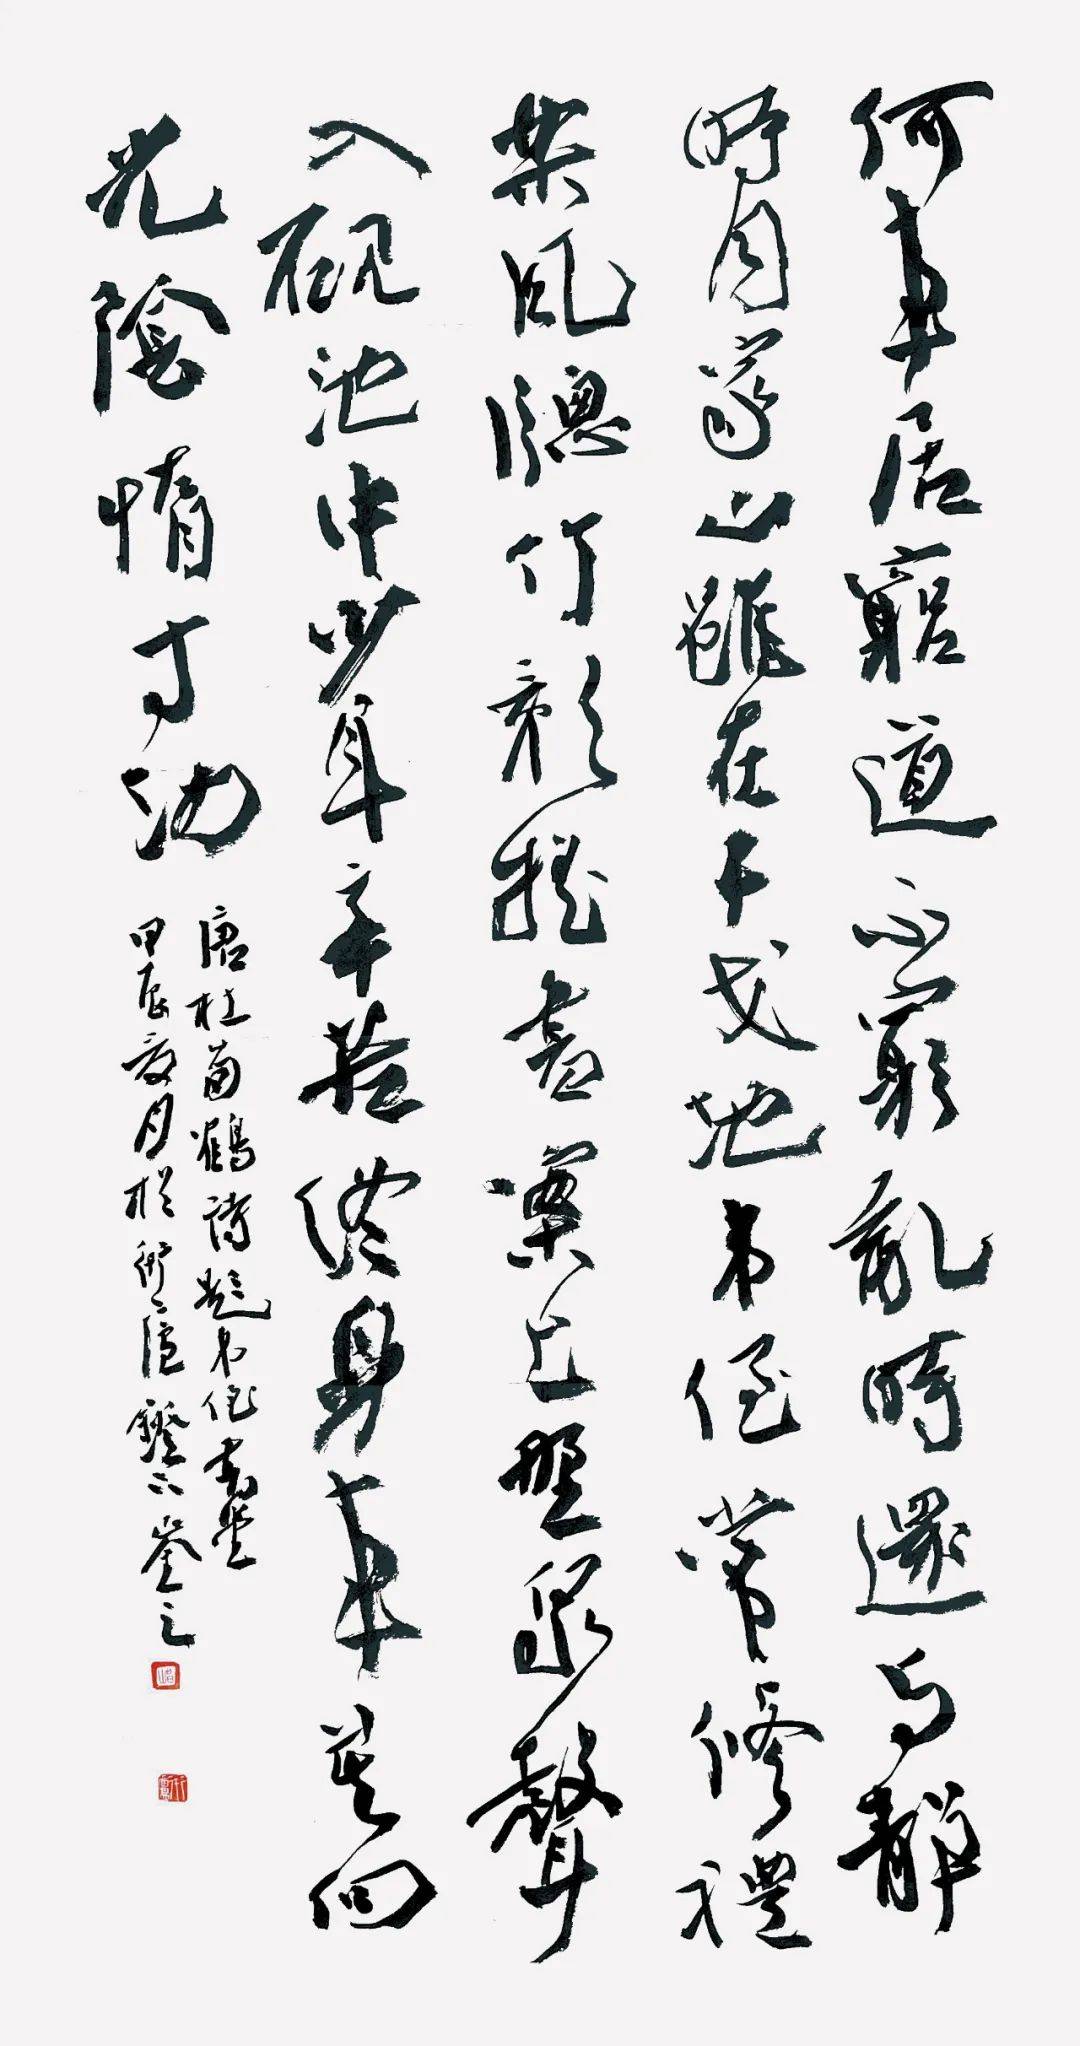 何事居窮道不窮亂時還与靜
時同家山雖在干戈地弟侄常修禮
樂風牕竹影摇書案上野泉聲
入硯池中少年辛苦終身事莫向
光陰惰寸功
唐杜荀鶴詩題弟侄書堂
甲辰夏月於廬鐙下之